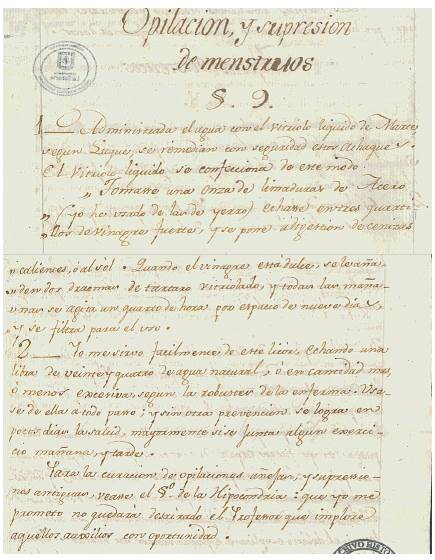 Opilacion, y supresion
de menstruos
§. 9.
1 Administrada el agua con el vitriolo liquido de Marte,
segun Luque, se remedian con seguridad estos Achaques.
El Vitriolo liquido se confecciona de este modo.
„ Tomasse una onza de limaduras de Acero
„ (yo he vsado de las de yerro) echasse en tres quarti-
„ llos de vinagre fuerte, y se pone a digestion de cenizas
„ calientes, ò al sol. Quando el vinagre està dulce, se le aña-
„ den dos dracmas de tartaro vitriolado, y todas las maña-
nas se agita un quarto de hora por espacio de nueve dias,
y se filtra para el vso.
2 Yo me sirvo facilmente de este licor, echando una
libra de veinte y quatro de agua natural, o en cantidad mas,
ò menos excesiva, segun la robustez de la enferma. Vsa-
se de ella à todo pasto; y sin otra prevencion se logra en
pocos dias la salud, mayormente si se junta algun exerci-
cio mañana, y tarde.
Para la curacion de opilaciones añejas, y supresio-
nes antiguas, vease el §º. de la Hipocondria: que yo me
prometo no quedarà desairado el Profesor que implore
aquellos auxilios con oportunidad.